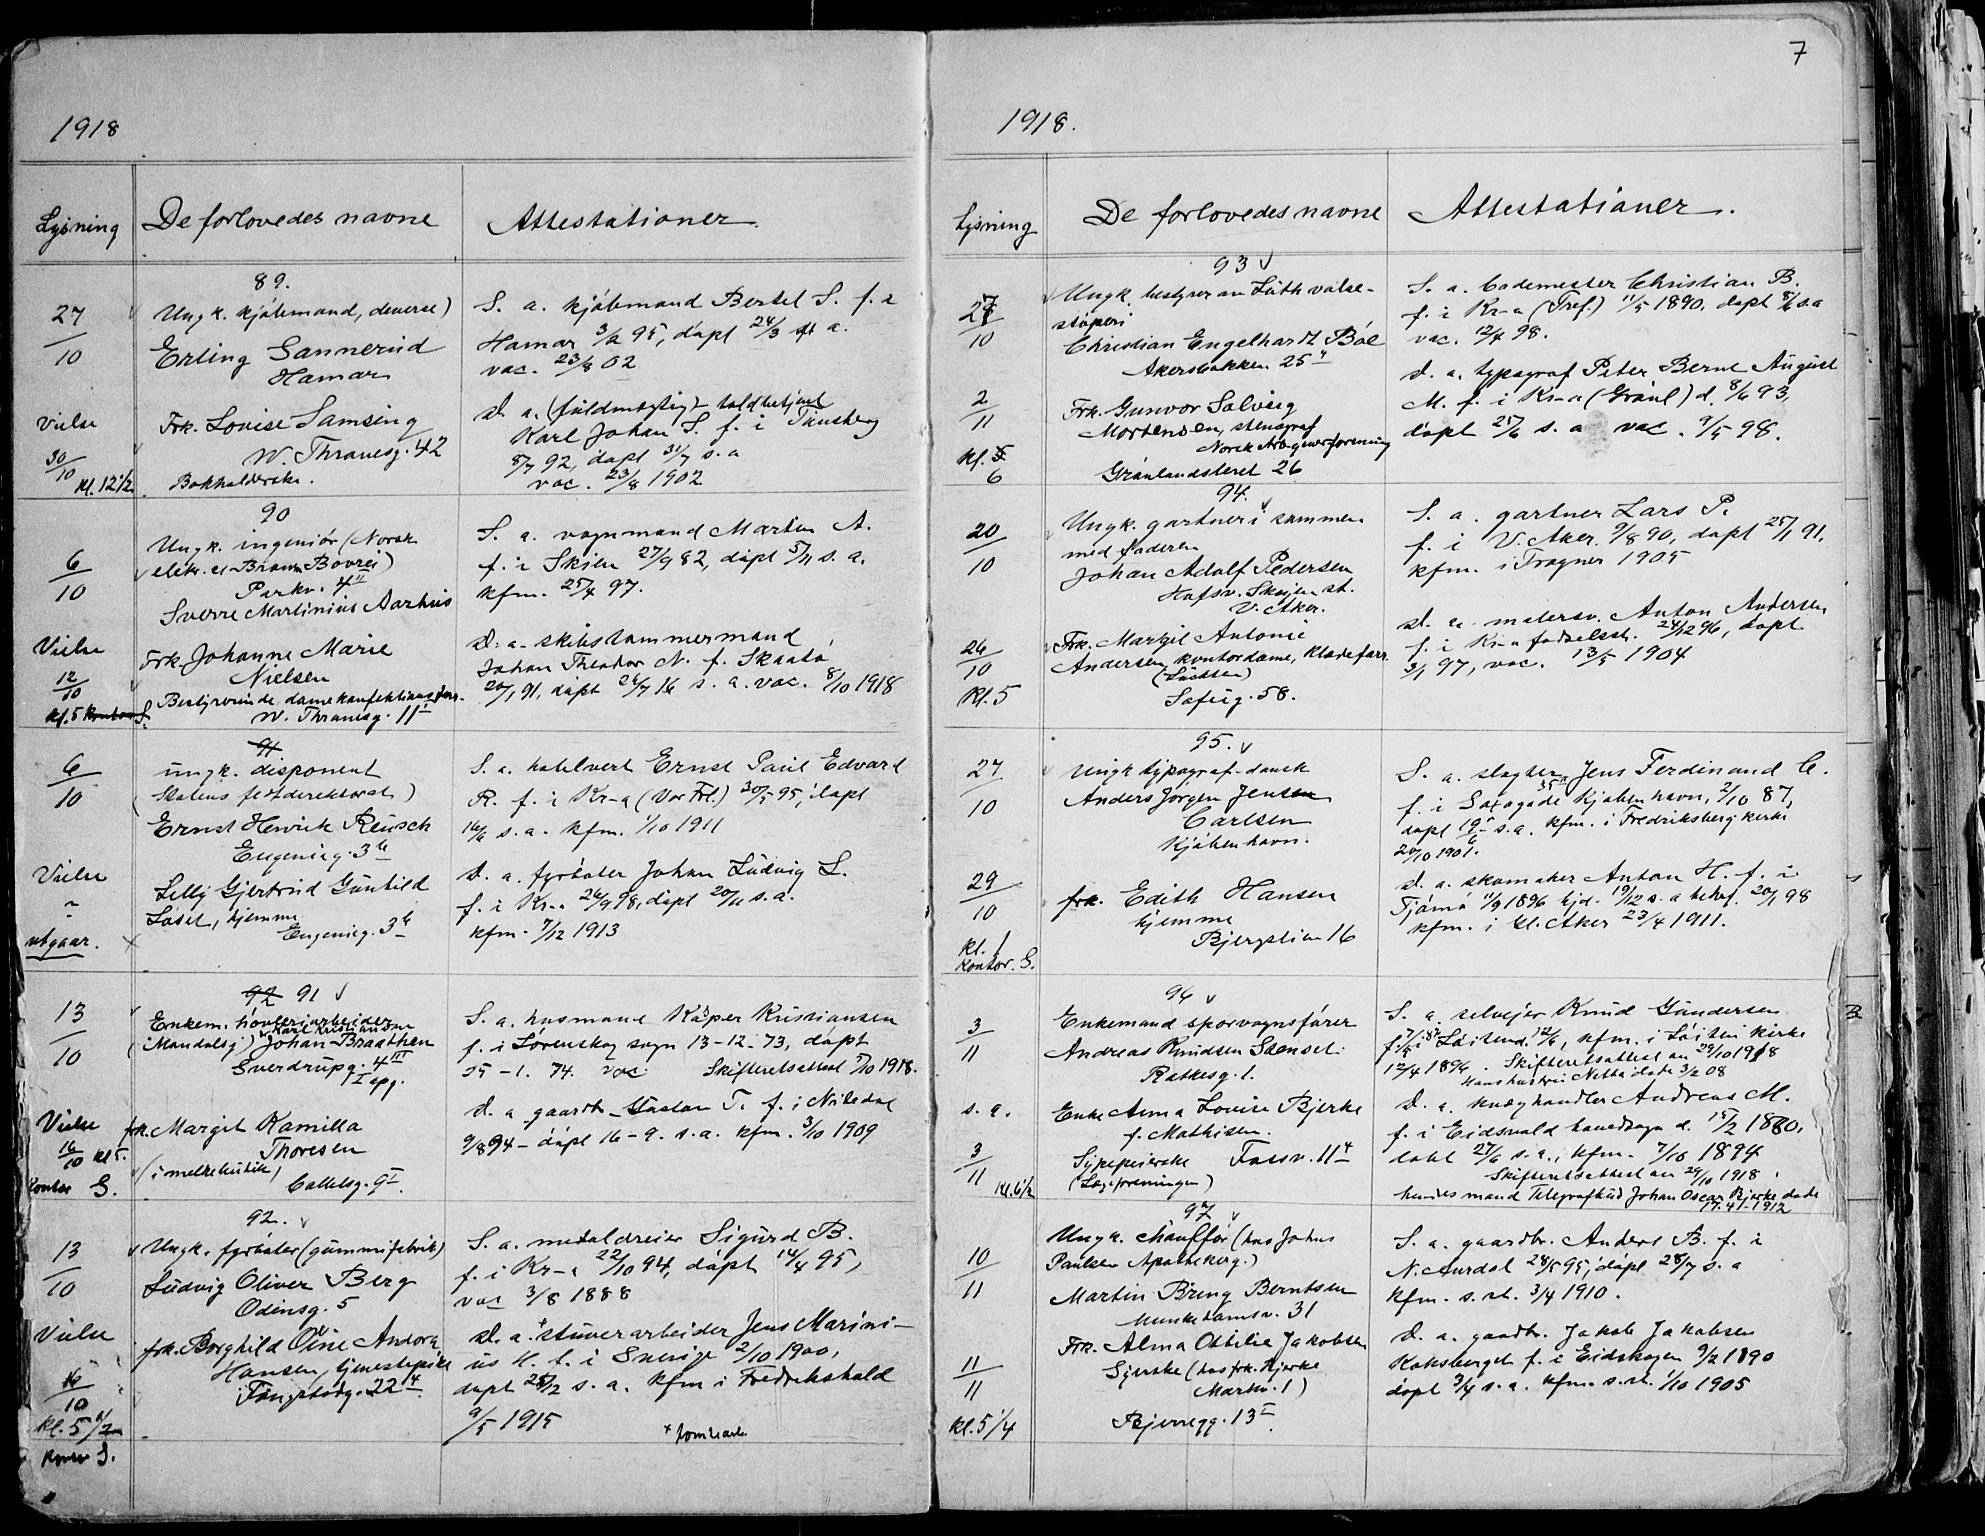 1918
Lysning
De forlovedes navne
Attestationer.
89.
27/10
Ungk. kjøbmand, deverse)
Erling Sannerud
Hamar
S. a. kjøbmand Bertel S. f. i
Hamar 3/2 95, døpt 24/3 s. a.
vac. 23/8 02
Vielse
30/10 Kl. 12 1/2
Frk. Lovise Samsing
W. Thranesg. 42
Bokholderske.
D. a. (fuldmegtig) toldbetjent
Karl Johan S. f. i Tønsberg
8/7 92, døpt 31/7 s. a
vac. 23/8 1902
90
6/10
Ungk. ingeniør (Norsk
elektr. & Brown Boveri)
Parkv. 4 II
Sverre Martinius Aarhus
S. a. vognmand Martin A.
f. i Skien 27/9 82, døpt 5/11 s. a.
kfm. 25/4 97.
Vielse
12/10
Kl. 5 Kontor S.
Frk. Johanne Marie
Nielsen
Bestyrerinde, damekonfektionsforr.
W. Thranesg. 11 I
D. a. skibstømmermand
Johan Theodor N. f. Skaatø
20/1 91, døpt 26/7 16 s. a. vac. 8/10 1918
91
6/10
ungk. disponent
(Statens direktorat)
Ernst Henrik Reusch
Eugenieg. 3 b
S. a. hotelvert Ernst Paul Edvard
R. f. i Kr-a (Vor Frl.) 30/5 95, døpt
16/6 s. a. kfm. 1/10 1911
Vielse
utgaar.
Lilly Gjertrud Gunhild
Løset, hjemme
Eugenieg. 3 b
D. a. fyrbøter Johan Ludvig L.
f. i Kr-a 26/9 98, døpt 20/11 s. a.
kfm. 7/12 1913
92 91
13/10
Enkem. høvleriarbeider
Karl Kristiansen
(Mandalsg.) Johan Braathen
Sverdrupg. 4 III
I opg.
S. a. husmand Kasper Kristiansen
f. i Lørenskog sogn 13-12-73, døpt
25-1. 74. vac. Skifteretsattest 5/10 1918.
Vielse
16/10 kl 5.
Kontor S.
frk. Margit Kamilla
Thoresen
(i melkebutik)
Colletsg. 9 I
D. a gaardbr. Gustav T. f. i Nitedal
9/8 94 - døpt 16-9. s. a. kfm. 3/10 1909
92.
13/10
Ungk. fyrbøter (gummifabrik)
Ludvig Oliver Berg
Odinsg. 5
S. a. metaldreier Sigurd B.
f. i Kr-a 22/10 94, døpt 14/4 95,
vac 3/8 1888
Vielse
/10
kl. 5 1/2
Kontor S.
frk. Borghild Oline Andora
Hansen, tjenestepike
Tøngstadg. 22 4
D. a. x stuverarbeider Jens Marini-
us H. f. i Sverige 2/10 1900,
døpt 25/12 s. a. kfm i Fredrikshald
9/5 1915
7
1918.
Lysning
De forlovedes navne
Attestationer.
93
27/10
Ungk. bestyrer av Lüth valse-
støperi
Christian Engelhardt Bøe
Akersbakken 25 II
S. a. bademester Christian B.
f. i Kr-a (Tref.) 11/5 1890, døpt 8/6 s. a
vac. 12/4 98.
2/11
Kl. 6
Frk. Gunvor Solveig
Mortensen, stenograf
Norsk Arbeiderforening
Grønlandsleret 26
D. a. typograf Peter Bernt August
M. f. i Kr-a (Grønl.) d. 8/6 93,
døpt 25/6 s. a vac. 9/5 98.
94.
20/10
Ungk. gartner i sammen
med faderen
Johan Adolf Pedersen
Hofsv. Skøjen st.
V. Aker.
S. a. gartner Lars P.
f. i V. Aker. 9/8 90, døpt 25/1 91,
kfm. i Frogner 1905
26/10
Kl. 5
Frk. Margit Antonie
Andersen, kontordame, Klædeforr.
Sofieg. 58.
D. a. matersv. Anton Andersen
f. i Kr-a fødselsst. 24/12 96, døpt
3/1 97, vac. 13/5 1904
95.
27/10
Ungk typograf - dansk
Anders Jørgen Jensen
Carlsen
Kjøbenhavn.
S. a. slagter Jens Ferdinand C.
f. i Saxogade 35 Kjøbenhavn, 2/10 87,
døpt 19/ s. a. kfm. i Fredriksberg kirke
20/10 1901.
29/10
Kl. 1
Kontor. S.
frk. Edith Hansen
hjemme
Bjergstien 16
D. a. skomaker Anton H. f. i
Tjømø 11/9 1896 hjd. 19/12 s. a bekref. 20/1 98
kfm. i Gl. Aker 23/4 1911.
96
3/11
Enkemand sporvognsfører
Andreas Knudsen Stenset.
Rathesg. 1.
S. a. selvejer Knud Gundersen
f. i Løiten d. 12/6, kfm. i Løiten kirke
12/4 1896. Skifteretsattest av 29/10 1918
Hans hustru Netta døde 3/2 08
s. a.
3/11 Kl. 6 1/2
Enke Anna Lovise Bjerke
f. Mathisen.
Sypepeierske Fossv. 11 4
(Lægeforeningen)
D. a. kvæghandler Andreas M.
f. i Eidsvold hovedsogn d. 15/2 1880,
døbt 27/6 s. a., kfm. 7/10 1894
Skifteretsattest av 29/10 1918
hendes mand Telegrafbud Johan Oscar Bjerke døde
17.41-1912
97
10/11
Ungk. chauffør (hos Johns
Paulsen Apothekerg.)
Martin Bring Berntsen
Munkedamsv. 31
S. a. gaardbr. Anders B. f. i
N. Aurdal 28/5 95, døpt 28/7 s. a
kfm. s. st. 3/4 1910.
11/11
kl. 5 1/4
Frk. Alma Ottilie Jakobsen
Syerske (hos frk. Bjerke
Markv. 1)
Bjerregg. 13 I
D. a. gaardbr. Jakob Jakobsen
Koksberget f. i Eidskogen 9/2 1890
døpt 3/4 s. a. kfm. s. st. 1/10 1905